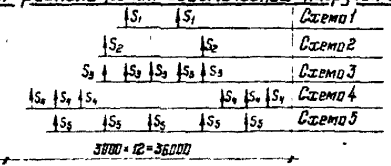 S₁ S₁ Схема 1
S₂ S₂ Схема 2
S₃ S₃ S₃ S₃ S₃ Схема 3
S₄ S₄ S₄ S₄ S₄ S₄ Схема 4
S₅ S₅ S₅ S₅ S₅ Схема 5
3000×12=36000